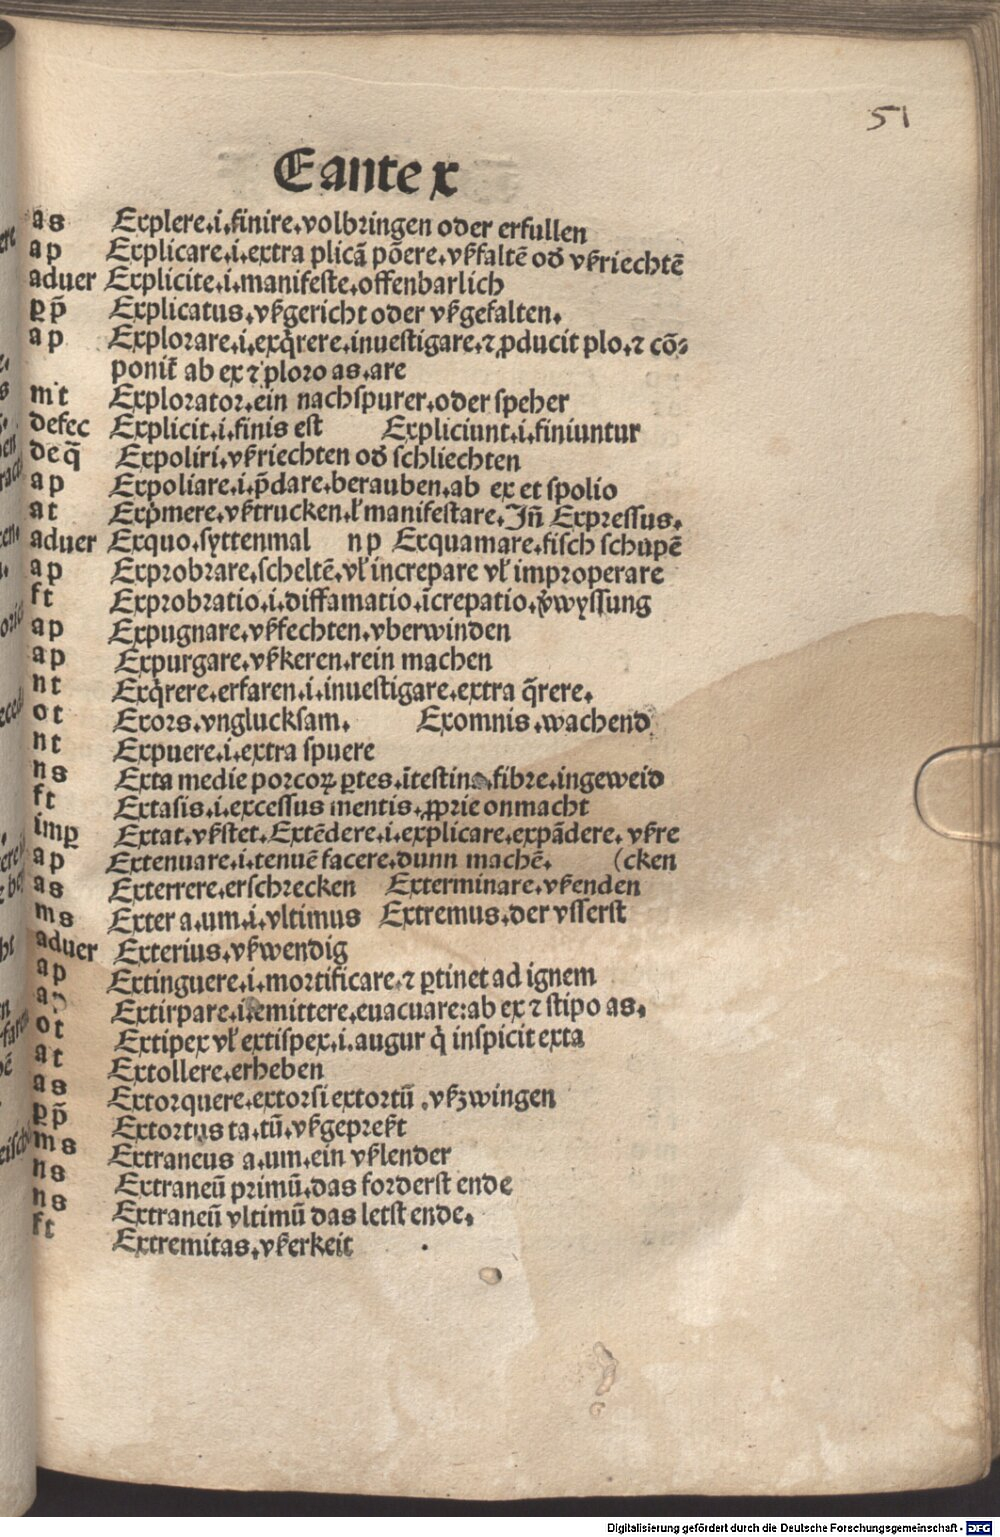 51
E ante x
as Explere.i.finire.volbringen oder erfullen
ap Explicare.i.extra plicā põere.vßfaltē oď vßriechtē
aduer Explicite.i.manifeste.offenbarlich
ꝑp̄ Explicatus.vßgericht oder vßgefalten.
ap Explorare.i.exq̇rere.inuestigare.⁊ ꝓducit plo.⁊ cō⸗
ponit̄ ab ex ⁊ ploro as.are
mt Explorator.ein nachspurer.oder speher
defec Explicit.i.finis est Expliciunt.i.finiuntur
deq̄ Expoliri.vßriechten oď schliechten
ap Expoliare.i.p̄dare.berauben.ab ex et spolio
at Exp̍mere.vßtrucken.ł manifestare.Jn̄ Expressus.
aduer Exquo.syttenmal np Exquamare.fisch schupē
ap Exprobrare.scheltē.vł increpare vł improperare
ft Exprobratio.i.diffamatio.īcrepatio.v̓wyssung
ap Expugnare.vßfechten.vberwinden
ap Expurgare.vßkeren.rein machen
nt Exq̇rere.erfaren.i.inuestigare.extra q̄rere.
ot Exors.vnglucksam. Exomnis.wachend
nt Expuere.i.extra spuere
ns Exta medie porcoꝝ ꝑtes.ītestina.fibre.ingeweid
ft Extasis.i.excessus mentis.ꝓprie onmacht
imꝑ Extat.vßstet.Extēdere.i.explicare.expādere.vßre
ap Extenuare.i.tenuē facere.dunn machē. (cken
as Exterrere.erschrecken Exterminare.vßenden
ms Exter a.um.i.vltimus Extremus.der vsserst
aduer Exterius.vßwendig
ap Extinguere.i.mortificare.⁊ ꝑtinet ad ignem
ap Extirpare.i.emittere.euacuare:ab ex ⁊ stipo as.
ot Extipex vł extispex.i.augur q̇ inspicit exta
at Extollere.erheben
as Extorquere.extorsi extortū.vßzwingen
ꝑp̄ Extortus ta.tū.vßgepreßt
ms Extraneus a.um.ein vßlender
ns Extraneū primū.das forderst ende
ns Extraneū vltimū das letst ende.
ft Extremitas.vßerkeit
Digitalisierung gefördert durch die Deutsche Forschungsgemeinschaft - DFG